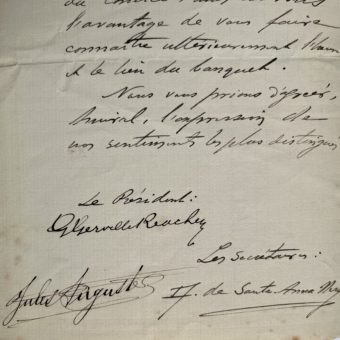 l'avantage de vous faire
connaître ultérieurement l'heure
et le lieu du banquet.
Nous vous prions d'agréer,
Amiral, l'expression de
nos sentiments les plus distingués
Le Président:
Gerville Réache
Les Secrétaires:
Jules Auguste
H. de Sainte Anna